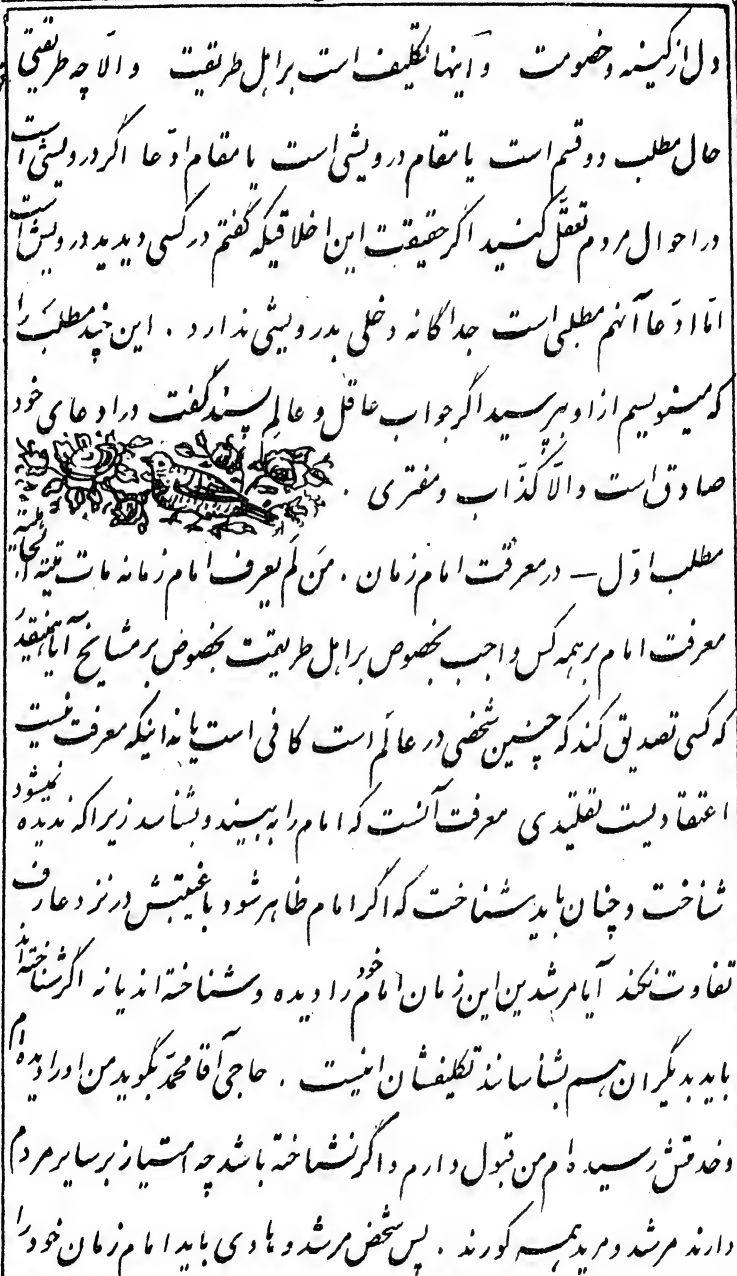 دل از کینه و خصومت و اینها تکلیف است بر اهل طریقت و الّا چه طریقتی
حال مطلب دو قسم است یا مقام درویشی است یا مقام ادّعا اگر درویشی است
در احوال مردم تعقّل کنید اگر حقیقت این اخلاقیکه گفتم در کسی دیدید درویش است
امّا ادّعا آنهم مطلبی است جداگانه دخلی بدرویشی ندارد . این چند مطلب را
که مینویسیم از او بپرسید اگر جواب عاقل و عالِم پسند گفت در ادعای خود
صادق است و الّا کذّاب و مفتری .
مطلب اوّل – در معرفت امام زمان . مَن لَم یعرف امام زمانه مات میتة الجاهلیة
معرفت امام بر همه کس واجب بخصوص بر اهل طریقت بخصوص بر مشایخ آیا همینقدر
که کسی تصدیق کند که چنین شخصی در عالَم است کافی است یا نه اینکه معرفت نیست
اعتقادیست تقلیدی معرفت آنست که امام را به بیند و بشناسد زیرا که ندیده نمیشود
شناخت و چنان باید شناخت که اگر امام ظاهر شود با غیبتش در نزد عارف
تفاوت نکند آیا مرشدین این زمان امام خود را دیده و شناخته اند یا نه اگر شناخته اند
باید بدیگران هم بشناسانند تکلیفشان اینست . حاجی آقا محمّد بگوید من او را دیده ام
و خدمتش رسیده ام من قبول دارم و اگر نشناخته باشد چه امتیاز بر سایر مردم
دارند مرشد و مرید همه کورند . پس شخص مرشد و هادی باید امام زمان خود را